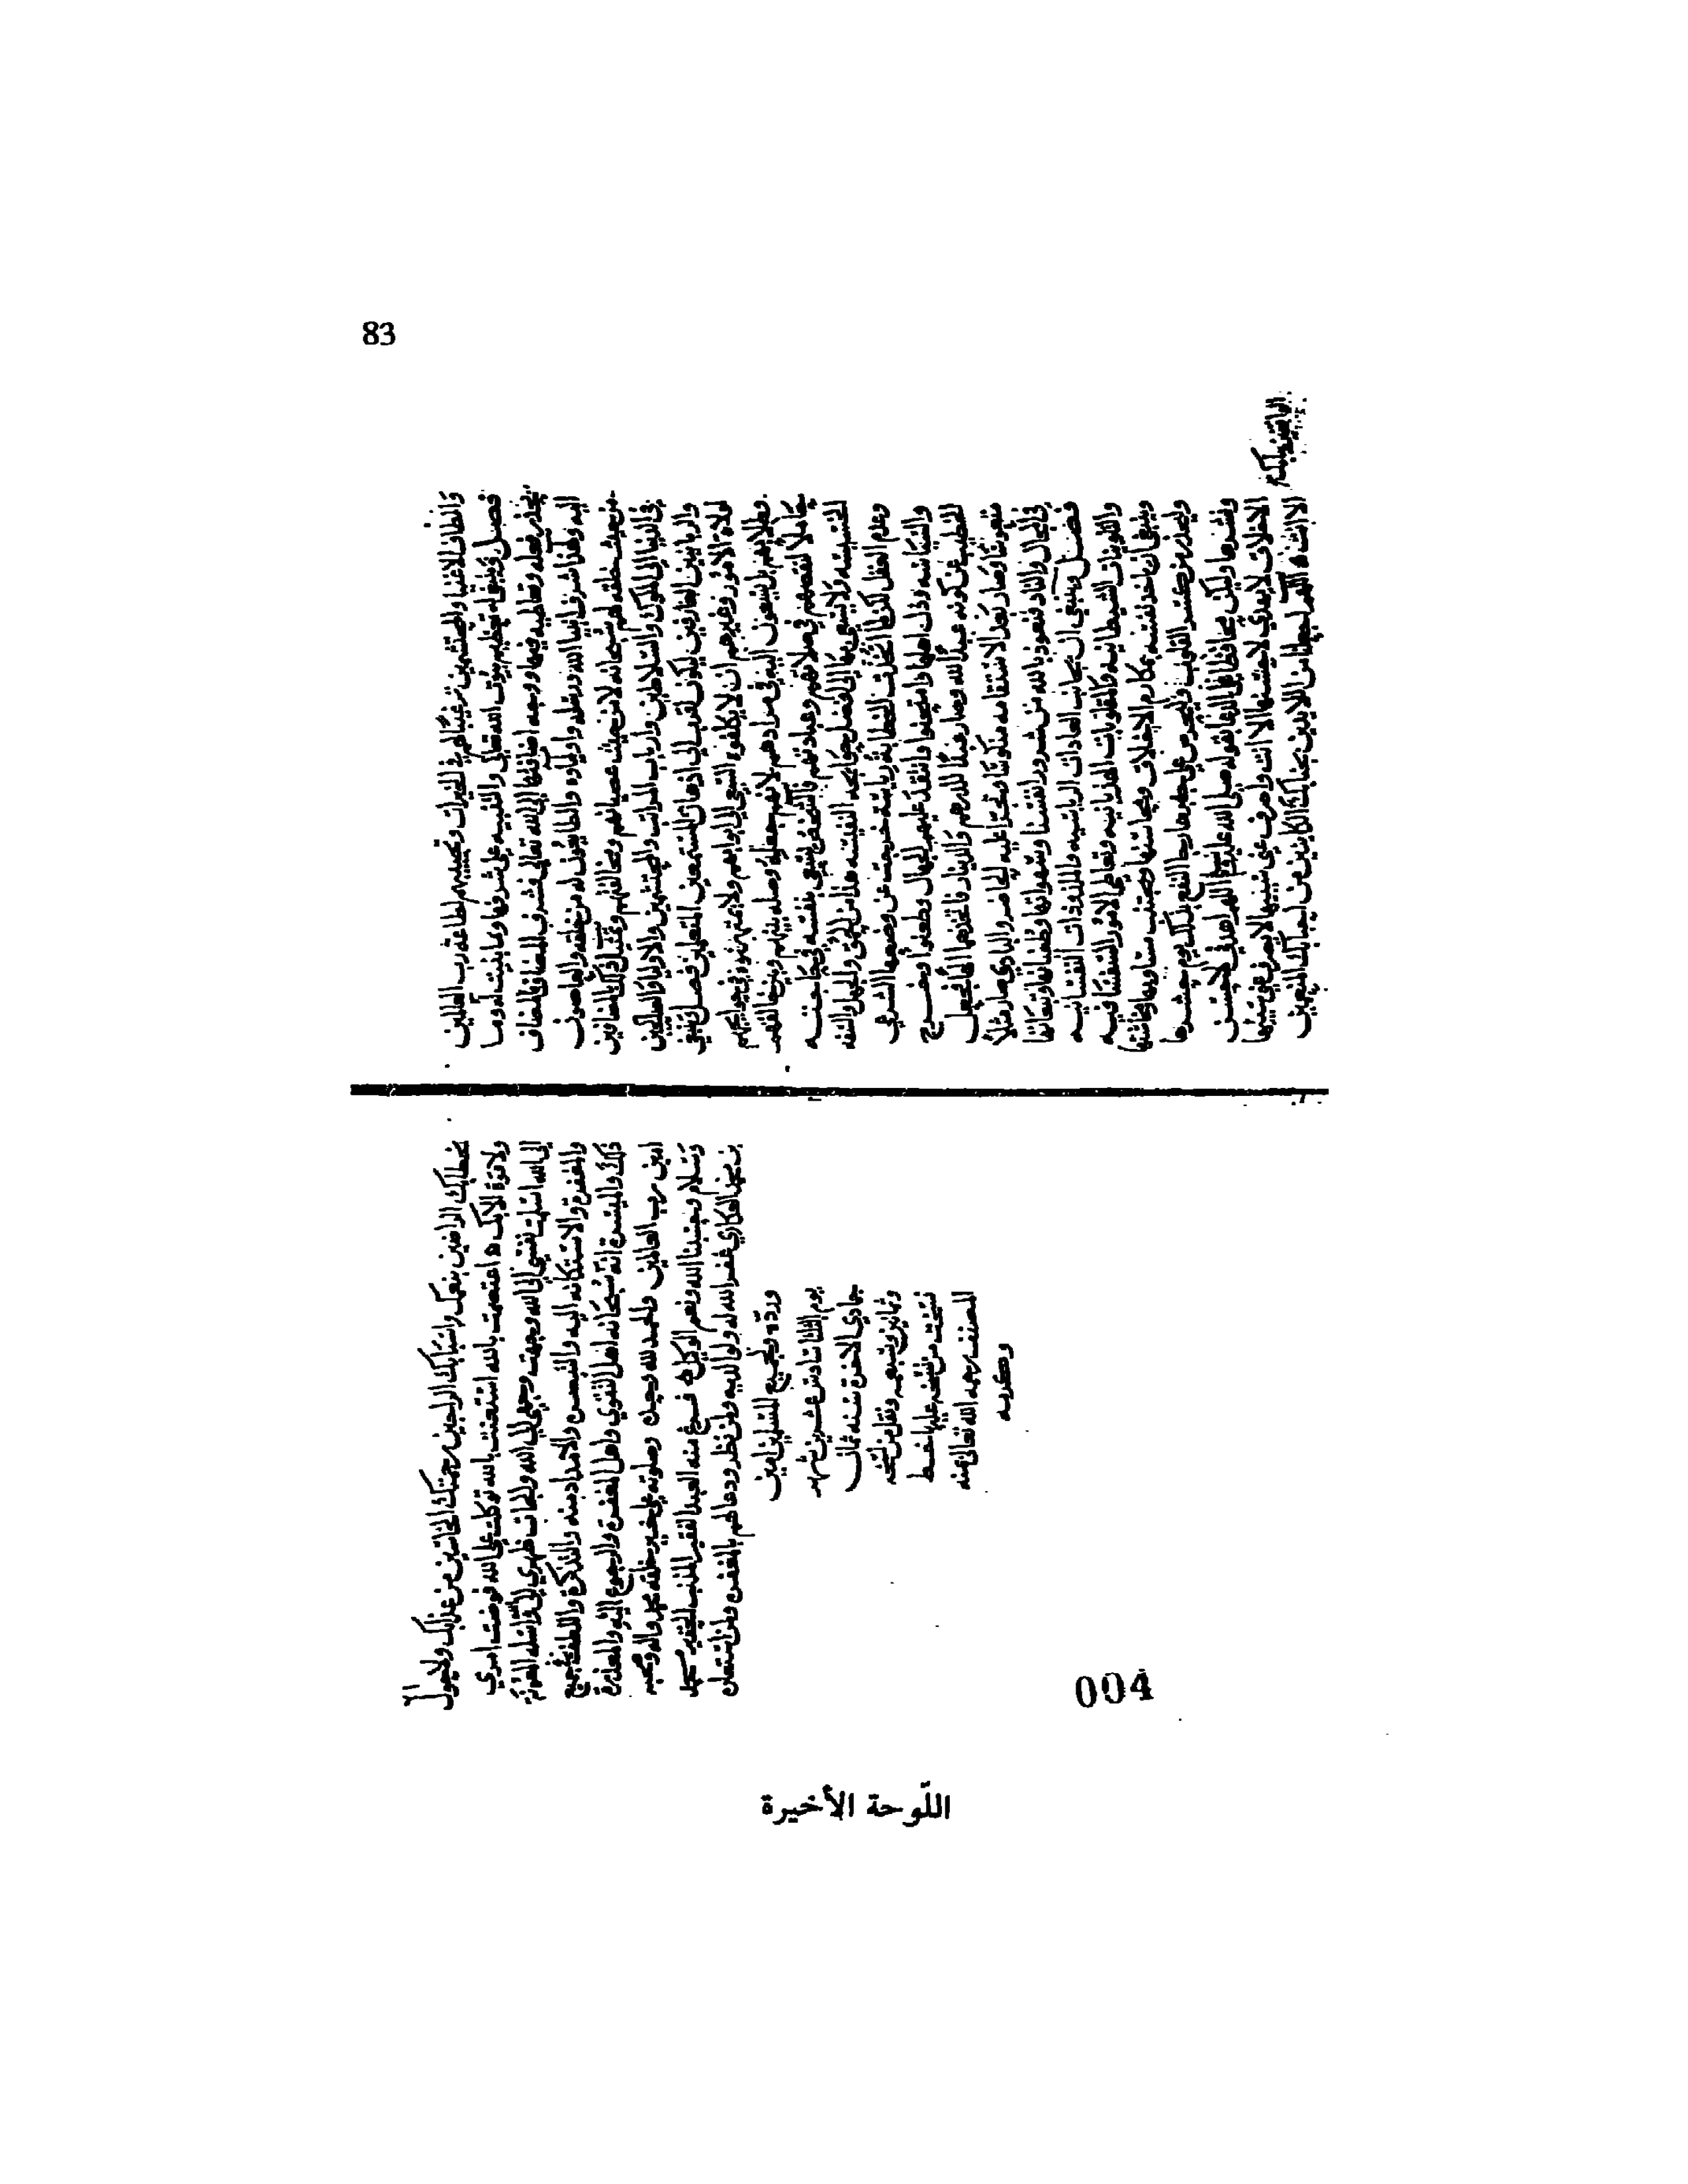 83
والطاف للاغنيا والمحتشمين ترغيبا لهم في الخيرات وتحبيبهم لطاعة رب العالمين
فصل وينبغي له تعظيم بيوت الله تعالى والتنبيه على شرفها وما بنيت له وما
فعله وتعاطيه فيها ووجه اضافتها الى الله تعالى فشرف المضاف بالمضاف
اليه وهكذا شرف انبيا الله ورسله واولياؤه والطائعون له من خلقه والعاصون
من حيث خلقه لهم سبحانه لا من حيث عصيانهم ومخالفتهم وتمثيل ذلك بالمضافين
في الدنيا الى الملوك والسلاطين وارباب المراتب والمحتشمين والاوليا والصالحين
والربانيين العارفين ليكون اقرب الى اذهان المستمعين المتعلمين فصل وينبغي
لولاة الامور وغيرهم ان لا يكلفوه السعي الى ابوابهم ولا يمتهنوه في حوايجهم
بل يسعون اليه في مرادهم لانهم جعلوه وصله بينهم وبين خالقهم
لنقصهم في صلاتهم وعبادتهم فالشخص يسعى بنفسه في حاجته
الخسيسة ولا يسعى بها الى افضل حوايجه النفيسة هذا من الحمق والجهل والسفه
وعدم العقل لكن لما اتخذت الخطابة رياسة خرجت عن وضعها الشرعي
وذل اهلها وامتهنوا وانتقد عليهم الجهال وطعنوا وخرج
الخطيب عن كونه عبدا لله وصار عبدا للدرهم والدينار فاتخذهما الها فجعل
متعوسا وصار بعد الاستقامة منكوسا وتجرأ عليه الحاضر والبادي وصار مثلا
في المجال والناد فنعوذ بالله من شرور انفسنا وشهواتها وطغيانها
فصل وينبغي ان يجانب العادات الرياسيه والملذوذات النفسانيه
والتلوينات الشيطانيه والمقلوبات الهذيانيه وتعاطي الامور
وينبغي ان ياخذ نفسه بمكارم الاخلاق ومحاسنها ويجتنب مساويها
وليحذر من كسر القلوب وليحرص على جبرها رجا النفع بذلك يوم حشرها
ونشرها وليكن محافظا على الدعا بقوله صلى الله عليه وسلم اللهم اهدني لاحسن
الاخلاق لا يهدي لاحسنها الا انت واصرف عني سيئها لا يصرف عني سيئها
الا انت اللهم اجعلنا من اللايذين بجنابك الكارزين من احبابك المنعمين
بخطابك الراضين بنعمك وانسابك الراجين رحمتك الخائفين من عذابك ولا حول
ولا قوة الا بك اعتصمت بالله استعنت بالله توكلت على الله فوضت امري
الى الله اسلمت نفسي الى الله وجهت وجهي الى الله والجات ظهري الى الله واسله التوبة
والمغفرة والاستكانة اليه والتبصرة والامداد منه والتذكرة واللطف في جميع
ذلك والميسرة انه سبحانه اهل التقوى واهل المغفرة والرجوع اليه والمعذرة
امين رب العالمين والحمد لله وحده وصلوته على خير خلقه محمد واله وصحبه
وسلام وحسبنا الله ونعم الوكيل فرغ منه العبد الفقير المذنب الحقير محمد
بن محمد الهكاري غفر الله له ولوالديه ولمن نظر ودعا لهم بالمغفرة ولمن استعان
ورده ولجميع المسلمين امين
يوم الثلثا سادس عشرين شهر
جمادي الاخرة سنة ثمان
وثمانين وسبعمه ونقل من نسخة
نسخت من نسخه عليها خط
المصنف رحمه الله تعالى بمنه
وكرمه
004
اللّوحة الأخيرة